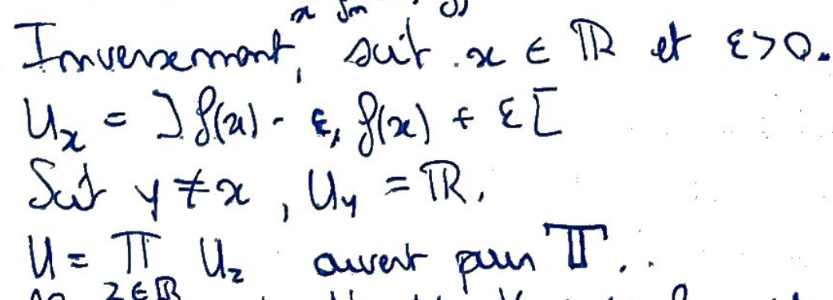 Inversement, soit x ∈ ℝ et ε>0.
U_x = ]f(x) - ε, f(x) + ε[
Soit y ≠ x, U_y = ℝ.
U = Π_{z∈ℝ} U_z ouvert pour 𝕋.